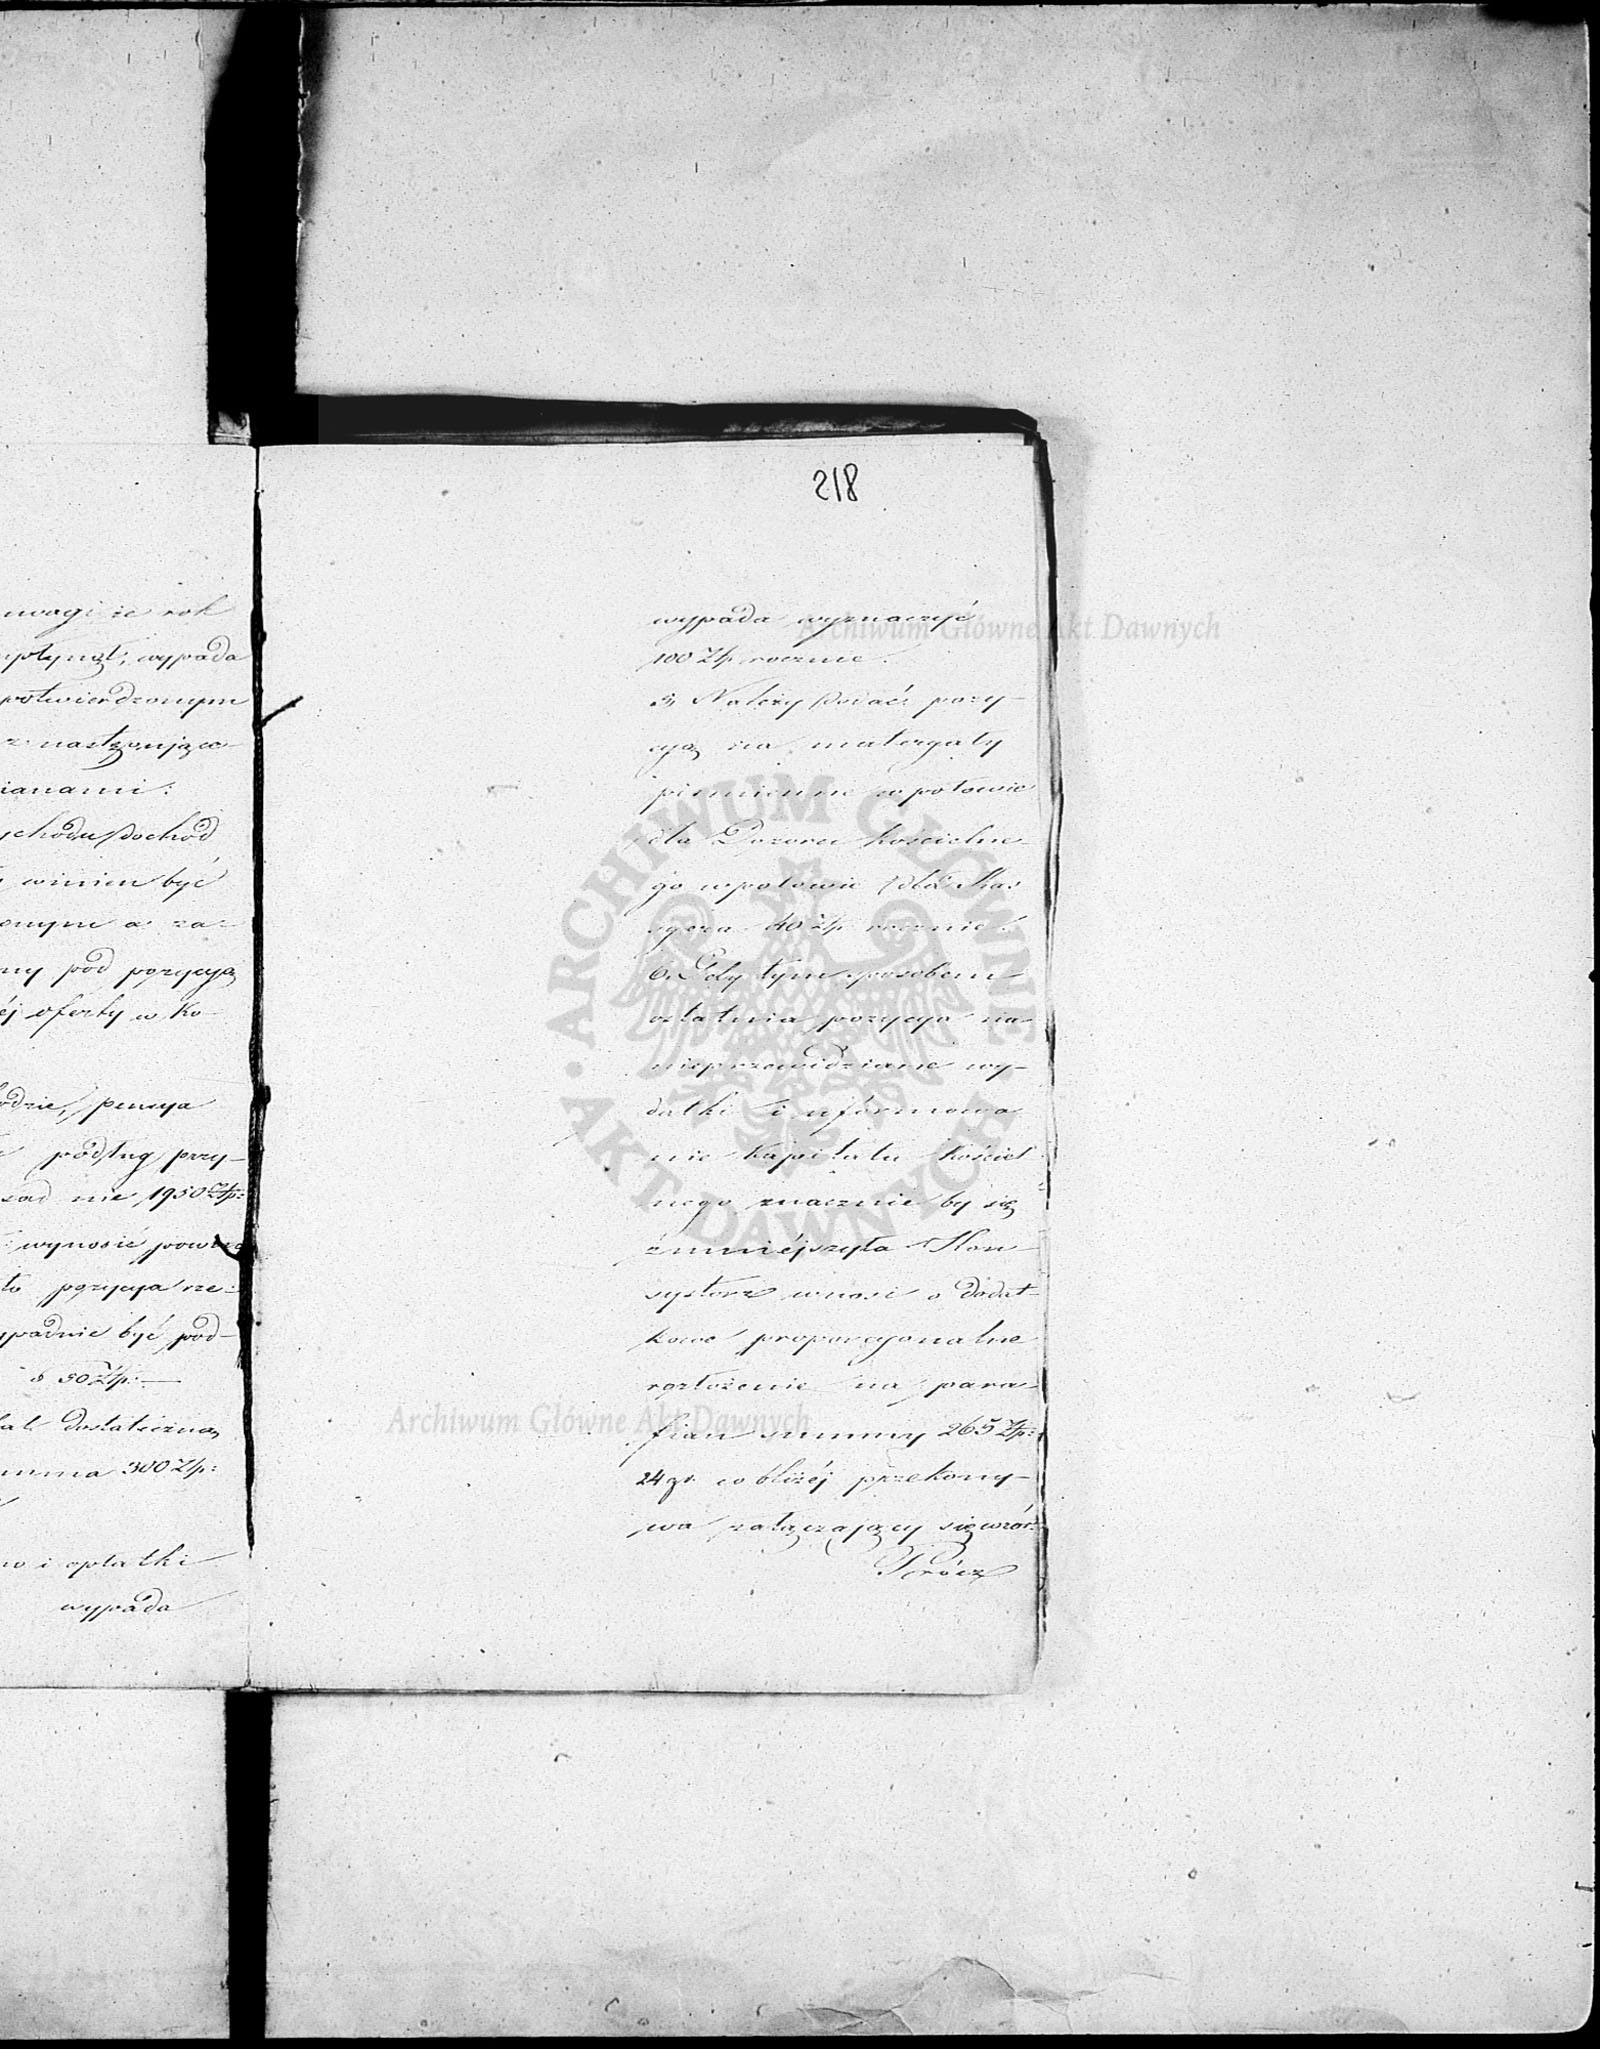 uwagi że rok
upłynął, wypada
potwierdzonym
z następujące-
ianami:
ychodu dochód
winien być
onym a za-
ny pod pozycyą
éj oferty w Ko-
odzie, pensya
podług przy-
sad nie 1950 Złp:
wynosić powin
to pozycya ze-
ypadnie być pod-
o 50 Złp:
at dostateczną
umma 300 Złp:
no i opłatki
wypada
218
wypada wyznaczyć
100 Złp. rocznie.
5, Należy dodać pozy-
cyą na materyały
piśmienne w połowie
dla Dozoru Kościelne-
go w połowie dla Kas
syera 40 Złp. rocznie.
6. Gdy tym sposobem
ostatnia pozycya na
nieprzewidziane wy-
datki i uformowa
nie Kapitału Kościel
nego znacznie by się
zmniéjszyła Kon-
systorz wnosi o dodat-
kowe proporcyonalne
rozłożenie na para-
fian summy 265 Złp:
24 gr. co bliżéj przekony-
wa załączający się wzór:
Prócz
Archiwum Główne Akt Dawnych
Archiwum Główne Akt Dawnych
ARCHIWUM GŁÓWNE AKT DAWNYCH